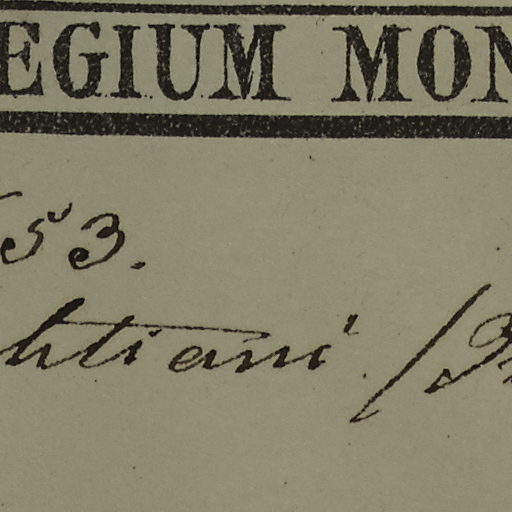 EGIUM MON
53.
htiani